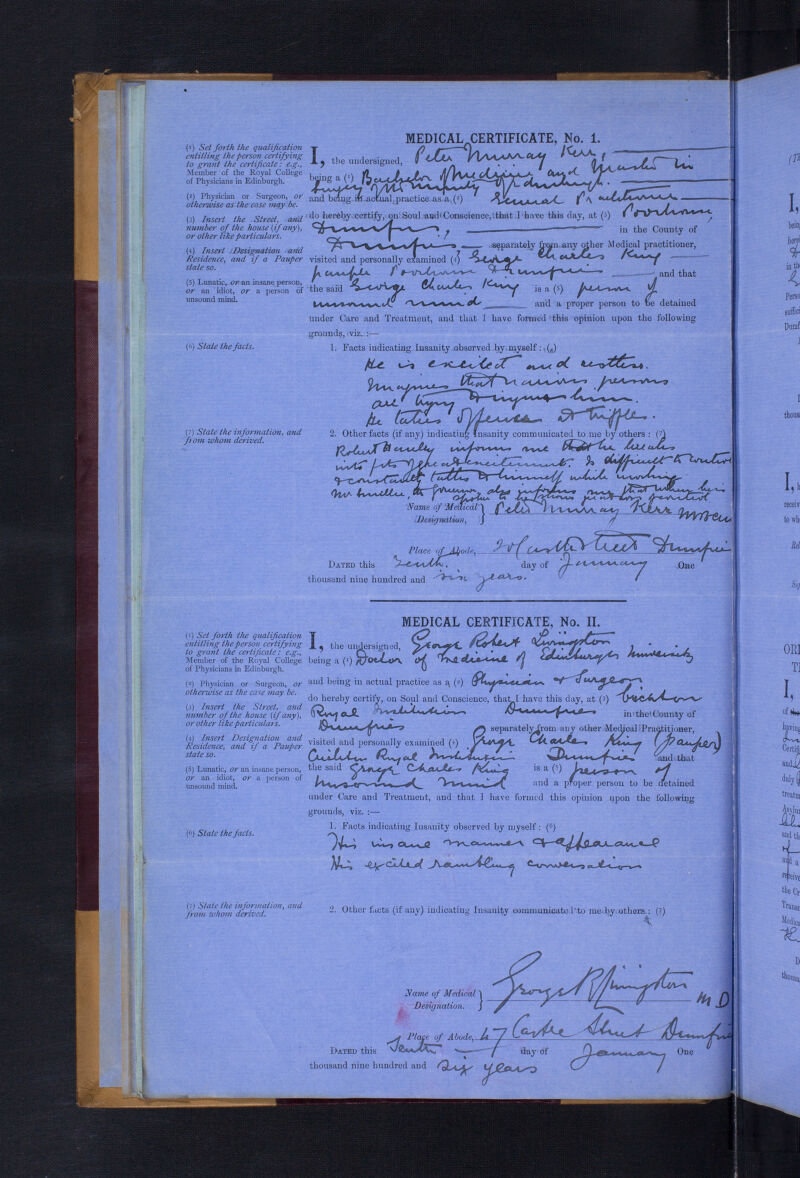 MEDICAL CERTIFICATE, No. 1.
(1) Set forth the qualification
entitling the person certifying
to grant the certificate: e.g.,
Member of the Royal College
of Physicians in Edinburgh.
(2) Physician or Surgeon, or
otherwise as the case may be.
(3) Insert the Street, and
number of the house (if any),
or other like particulars.
(4) Insert Designation and
Residence, and if a Pauper
state so.
(5) Lunatic, or an insane person,
or an idiot, or a person of
unsound mind.
I, the undersigned, Peter Murray Kerr,
being a (1) Bachelor of Medicine and Master in
Surgery of the University of Edinburgh.
and being in actual practice as a (2) General Practitioner
do hereby certify, on Soul and Conscience, that I have this day, at (3) Poorhouse,
Dumfries, in the County of
Dumfries, separately from any other Medical practitioner,
visited and personally examined (4) George Charles King
pauper Poorhouse Dumfries and that
the said George Charles King is a (5) person of
unsound mind and a proper person to be detained
under Care and Treatment, and that I have formed this opinion upon the following
grounds, viz. :—
(6) State the facts.
1. Facts indicating Insanity observed by myself : (6)
He is excited and restless.
Imagines that various persons
are trying to injure him.
He takes offence at trifles.
(7) State the information, and
from whom derived.
2. Other facts (if any) indicating Insanity communicated to me by others : (7)
Robert informs me that he breaks
into fits of great excitement. Is difficult to control
& constantly talks to himself while working
the Governor also informs me that when he is
spoken to he
Name of Medical Designation, } Peter Murray Kerr
Place of Abode, Castle Street Dumfries
DATED this Tenth. day of January One
thousand nine hundred and six years.
MEDICAL CERTIFICATE, No. II.
(1) Set forth the qualification
entitling the person certifying
to grant the certificate: e.g.,
Member of the Royal College
of Physicians in Edinburgh.
(2) Physician or Surgeon, or
otherwise as the case may be.
(3) Insert the Street, and
number of the house (if any),
or other like particulars.
(4) Insert Designation and
Residence, and if a Pauper
state so.
(5) Lunatic, or an insane person,
or an idiot, or a person of
unsound mind.
I, the undersigned, George Robert Livingston
being a (1) Doctor of Medicine of Edinburgh University
and being in actual practice as a (2) Physician & Surgeon
do hereby certify, on Soul and Conscience, that I have this day, at (3) Crichton
Royal Institution Dumfries in the County of
Dumfries separately from any other Medical Practitioner,
visited and personally examined (4) George Charles King (pauper)
Crichton Royal Institution Dumfries and that
the said George Charles King is a (5) person of
unsound mind and a proper person to be detained
under Care and Treatment, and that I have formed this opinion upon the following
grounds, viz. :—
(6) State the facts.
1. Facts indicating Insanity observed by myself : (6)
His insane manner & appearance
His excited rambling conversation
(7) State the information, and
from whom derived.
2. Other facts (if any) indicating Insanity communicated to me by others : (7)
Name of Medical Designation. } George R Livingston M.D
Place of Abode, 47 Castle Street Dumfries
DATED this Tenth day of January One
thousand nine hundred and six years